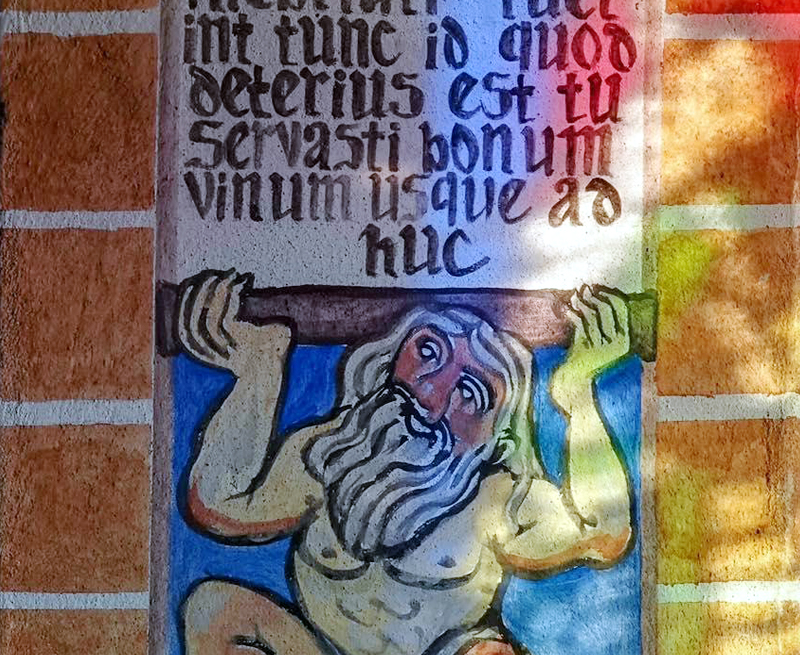 int tunc id quod
deterius est tu
servasti bonum
vinum usque ad
huc